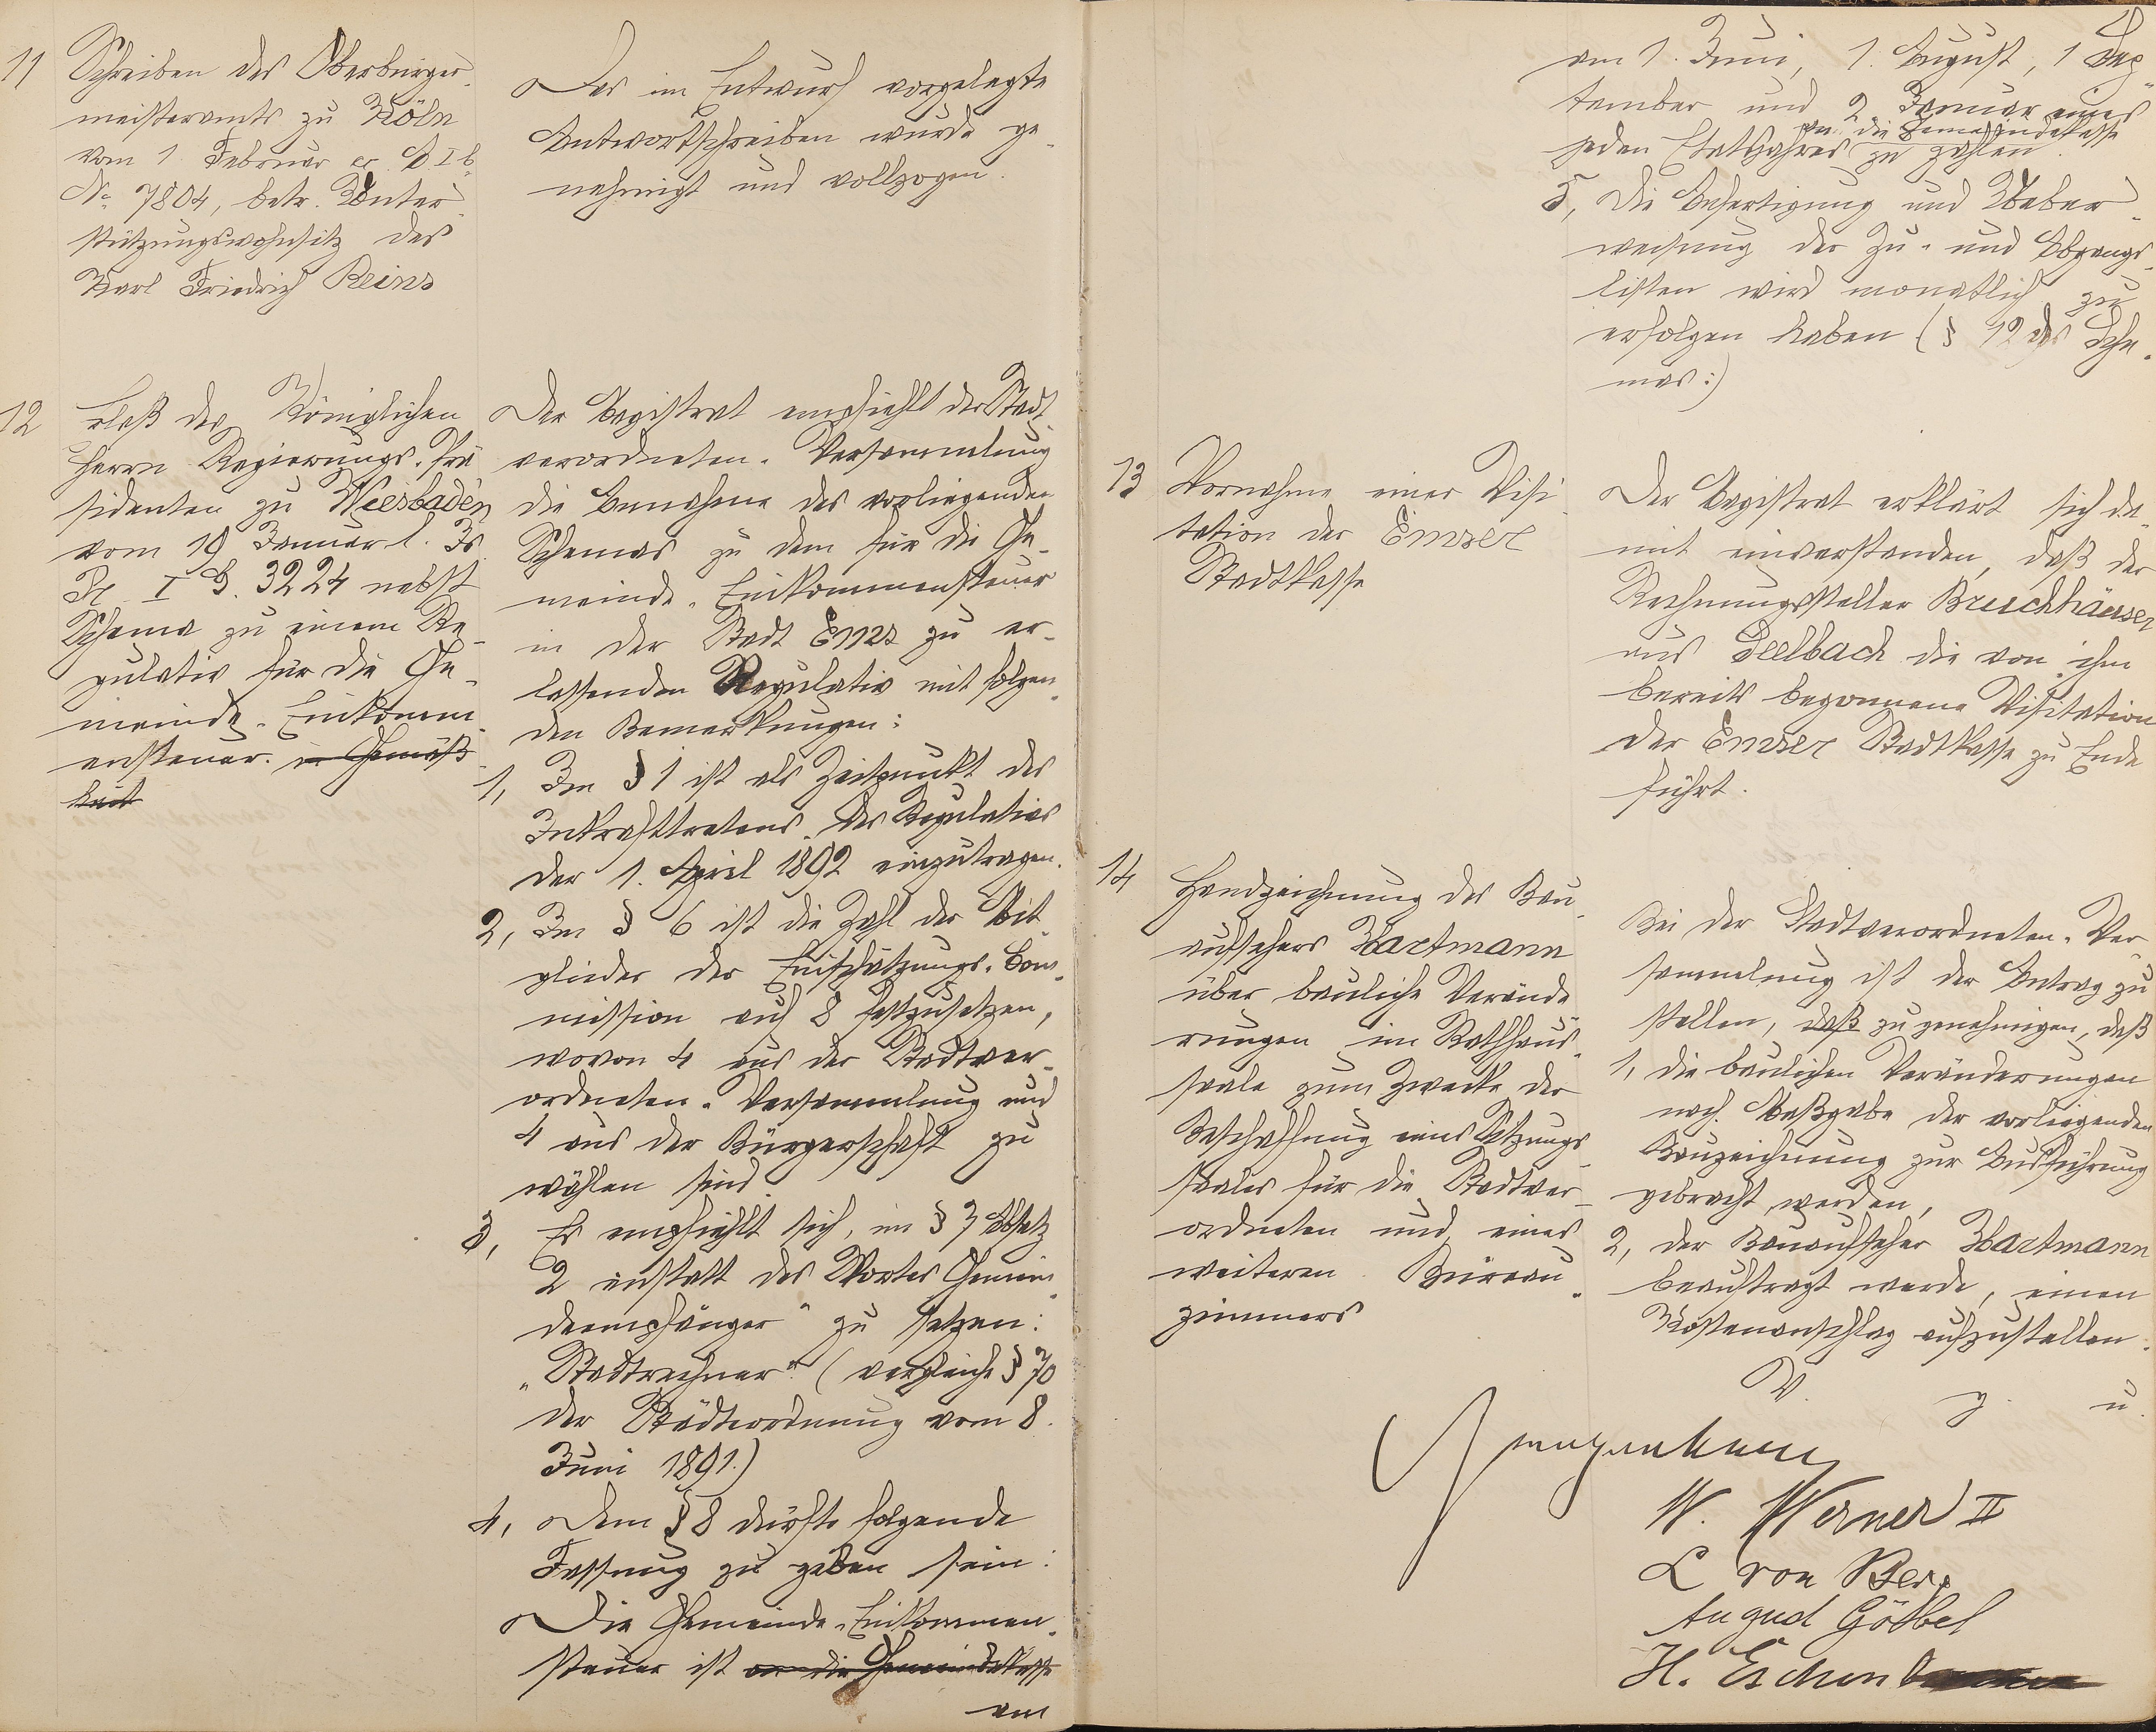 11
Schreiben des Oberbürger-
meisteramts zu Köln
vom 1. Februar cr. A I b
No 7804, betr. Unter-
stützungswohnsitz des
Karl Friedrich Reins
Das im Entwurf vorgelegte
Antwortschreiben wurde ge-
nehmigt und vollzogen.
12
Erlaß des Königlichen
Herrn Regierungs-Prä-
sidenten zu Wiesbaden
vom 19. Januar l. Js.
Pr. I G. 3224 nebst
Schema zu einem Re-
gulativ für die Ge-
meinde-Einkomm-
ensteuer. in Gemäß-
heit
Der Magistrat empfiehlt der Stadt-
verordneten-Versammlung
die Annahme des vorliegenden
Schemas zu dem für die Ge-
meinde-Einkommensteuer
in der Stadt Ems zu er-
lassenden Regulativ mit folgen-
den Bemerkungen:
1, Im § 1 ist als Zeitpunkt des
Inkrafttretens des Regulativs
der 1. April 1892 einzutragen.
2, Im § 6 ist die Zahl der Mit-
glieder der Einschätzungs-Com-
mission auf 8 festzusetzen,
wovon 4 aus der Stadtver-
ordneten-Versammlung und
4 aus der Bürgerschaft zu
wählen sind.
3, Es empfiehlt sich, im § 7 Absatz
2 anstatt des Wortes Gemein-
deempfänger" zu setzen:
"Stadtrechner" (vergleiche § 70
der Städteordnung vom 8.
Juni 1891.)
4, Dem § 8 dürfte folgende
Fassung zu geben sein:
Die Gemeinde-Einkommen-
steuer ist an die Gemeindekasse
am
am 1. Juni, 1. August, 1 Sep-
tember und 2 Januar eines
jeden Etatsjahres an die Gemeindekasse zu zahlen.
5, Die Anfertigung und Ueber-
weisung der Zu- und Abgangs-
listen wird monatlich zu
erfolgen haben (§ 12 des Sche-
mas:)
13
Vornahme einer Visi-
tation der Emser
Stadtkasse
Der Magistrat erklärt sich da-
mit einverstanden, daß der
Rechnungssteller Bruchhäuser
aus Seelbach die von ihm
bereits begonnene Visitation
der Emser Stadtkasse zu Ende
führt.
14
Handzeichnung des Bau-
aufsehers Hartmann
über bauliche Verände-
rungen im Rathhaus-
saale zum Zwecke der
Beschaffung eines Sitzungs-
saales für die Stadtver-
ordneten und eines
weiteren Büreau-
zimmers
Bei der Stadtverordneten-Ver-
sammlung ist der Antrag zu
stellen, daß zu genehmigen, daß
1, die baulichen Veränderungen
nach Maßgabe der vorliegenden
Bauzeichnung zur Ausführung
gebracht werden,
2, der Bauaufseher Hartmann
beauftragt werde, einen
Kostenanschlag aufzustellen.
V. g. u.
W. Werner II
L von Berg
August Göbbel
H. Eschen